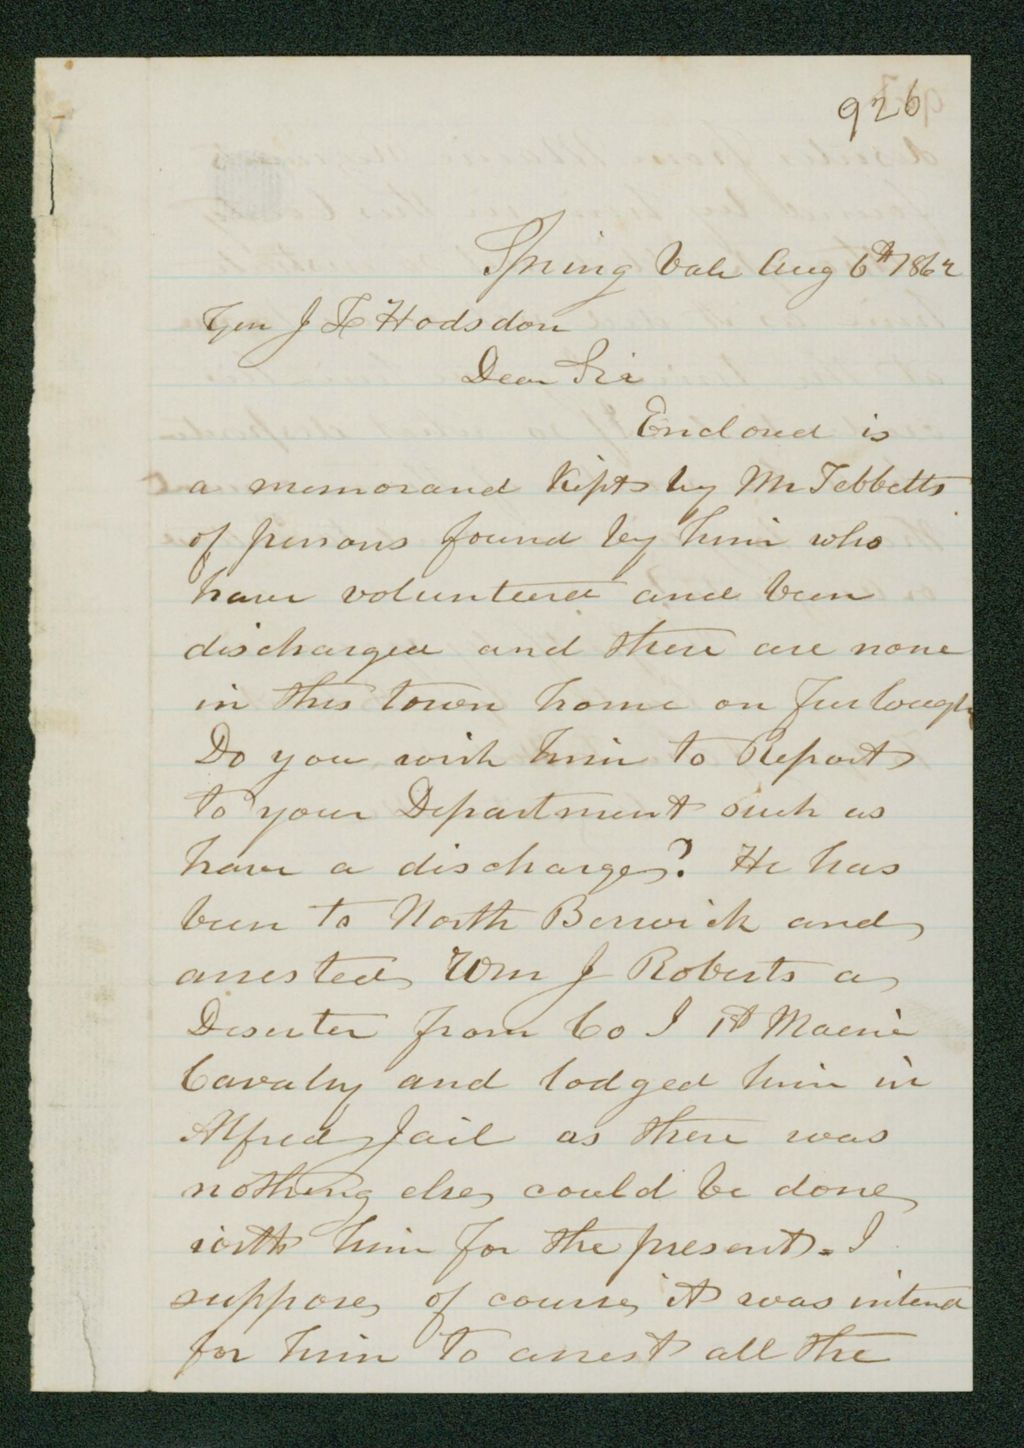 926
Spring Vale Aug 6th 1862
Gen J L Hodsdon
Dear Sir
Enclosed is
a memorand kept by Mr Tebbetts
of persons found by him who
have volunteered and been
discharged and there are none
in this town home on furlough
Do you wish him to Report
to your Department such as
have a discharge? He has
been to North Berwick and
arrested Wm J Roberts a
Deserter from Co I 1st Maine
Cavalry and lodged him in
Alfred Jail as there was
nothing else could be done
with him for the present. I
suppose of course it was intend
for him to arrest all the